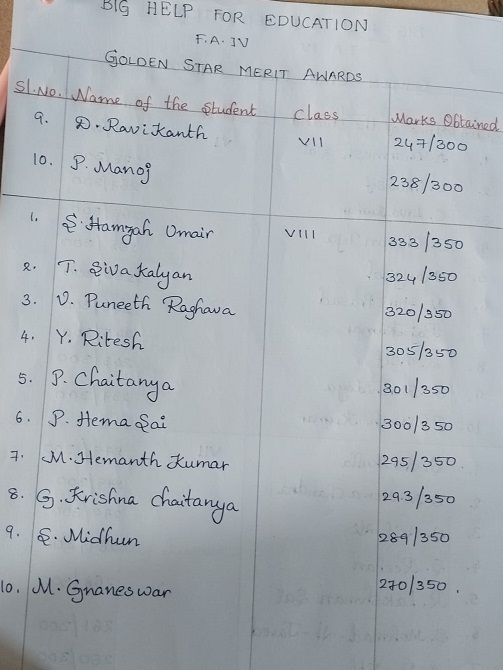 BIG HELP FOR EDUCATION
F.A. IV
GOLDEN STAR MERIT AWARDS
Sl.No. Name of the Student Class Marks Obtained
9. D. Ravi Kanth VII 247/300
10. P. Manoj 238/300
1. S. Hamzah Umair VIII 333/350
2. T. Siva Kalyan 324/350
3. V. Puneeth Raghava 320/350
4. Y. Ritesh 305/350
5. P. Chaitanya 301/350
6. P. Hema Sai 300/350
7. M. Hemanth Kumar 295/350
8. G. Krishna Chaitanya 293/350
9. S. Midhun 289/350
10. M. Gnaneswar 270/350.